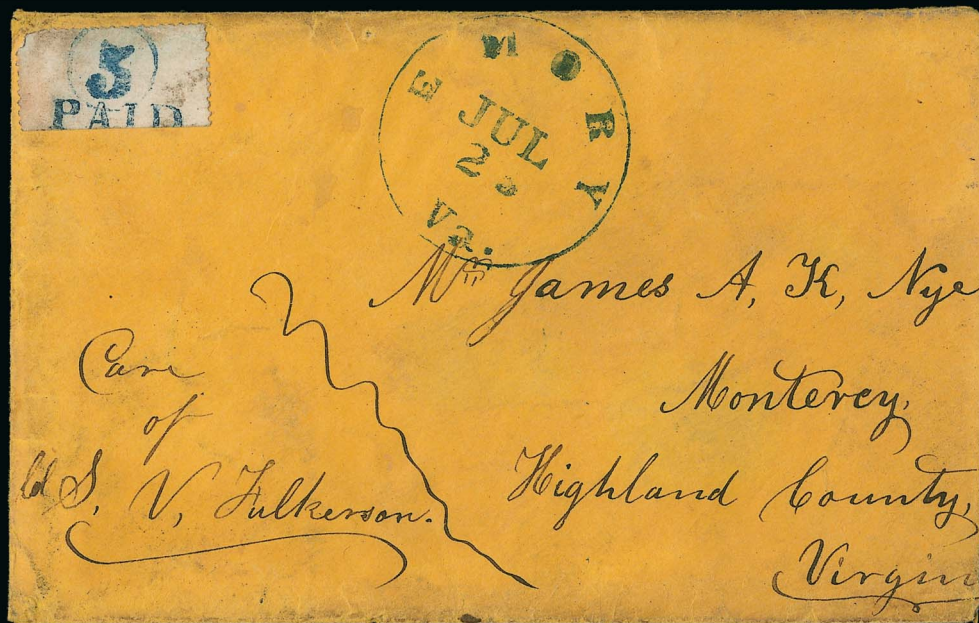 5
PAID
EMORY
JUL
Va.
Mr James A, K, Nye
Monterey,
Highland County,
Virgin
Care
of
Col S, V, Fulkerson.